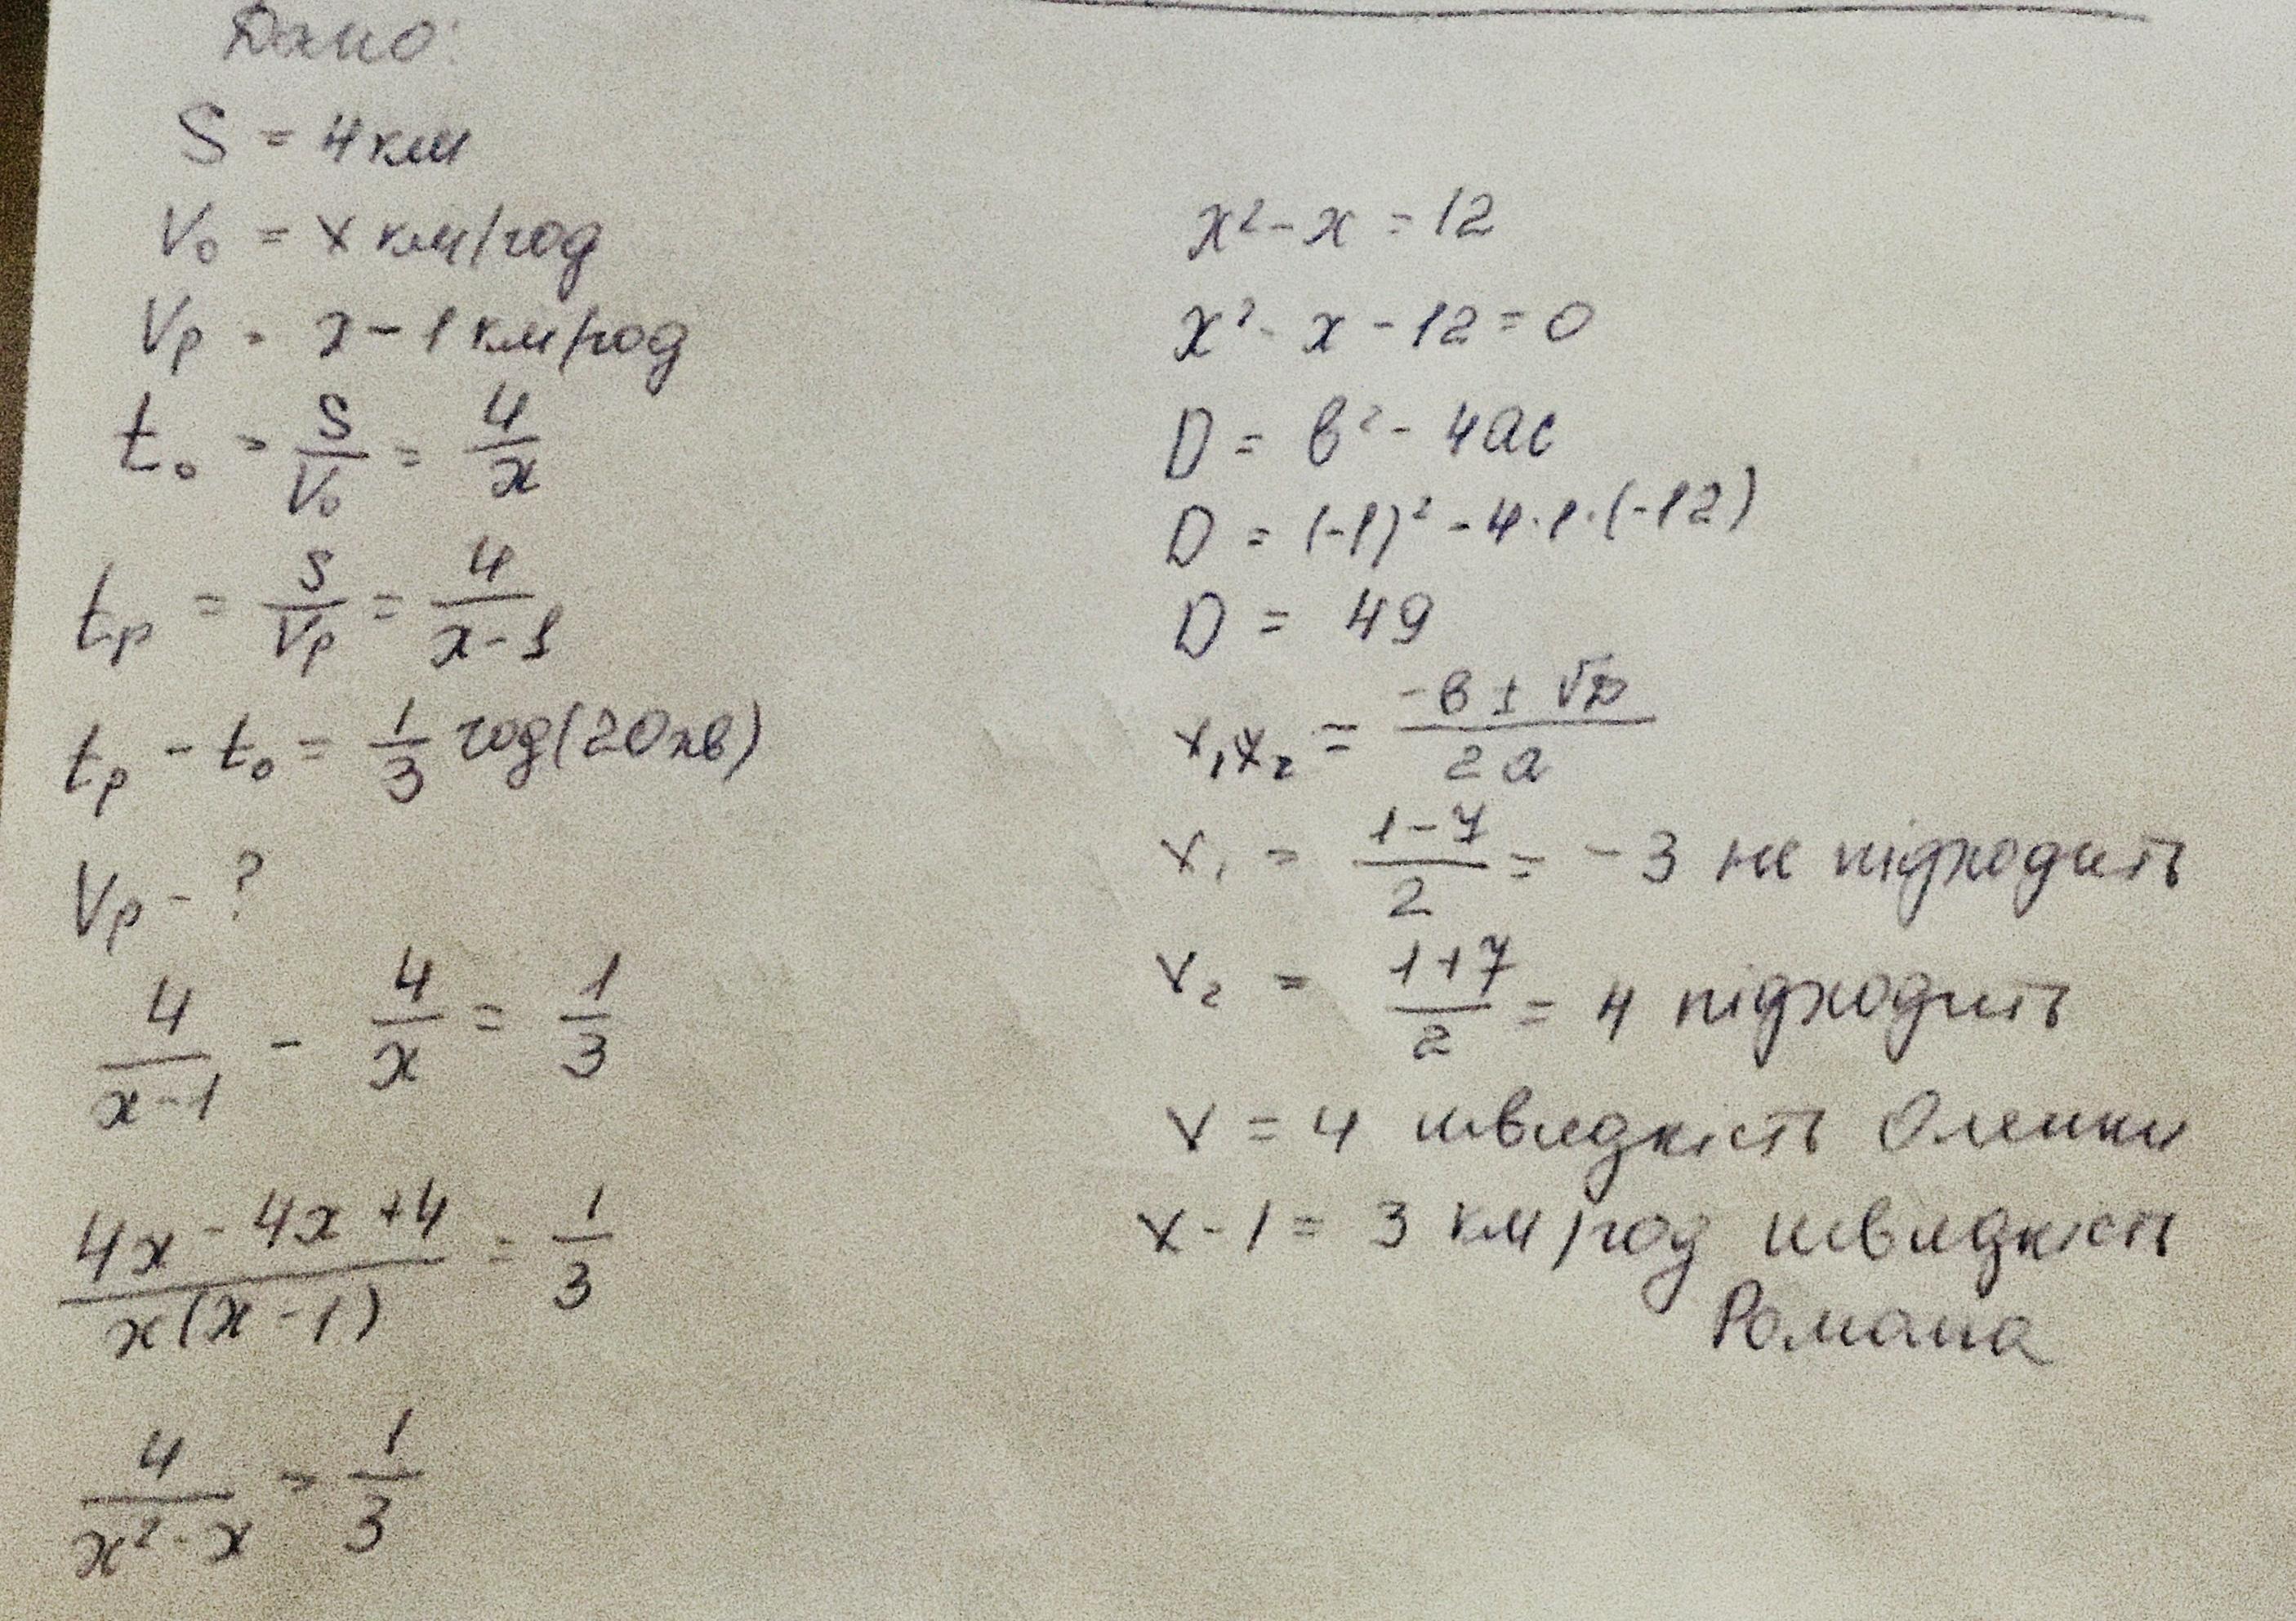 Дано:
S = 4 км
V₀ = x км/год
Vр = x - 1 км/год
t₀ = S/V₀ = 4/x
tр = S/Vр = 4/(x-1)
tр - t₀ = 1/3 год (20хв)
Vр - ?
4/(x-1) - 4/x = 1/3
(4x - 4x + 4)/(x(x-1)) = 1/3
4/(x² - x) = 1/3
x² - x = 12
x² - x - 12 = 0
D = в² - 4ac
D = (-1)² - 4·1·(-12)
D = 49
x₁x₂ = (-в ± √D)/(2a)
x₁ = (1-7)/2 = -3 не підходить
x₂ = (1+7)/2 = 4 підходить
x = 4 швидкість Оленки
x - 1 = 3 км/год швидкість
Романа